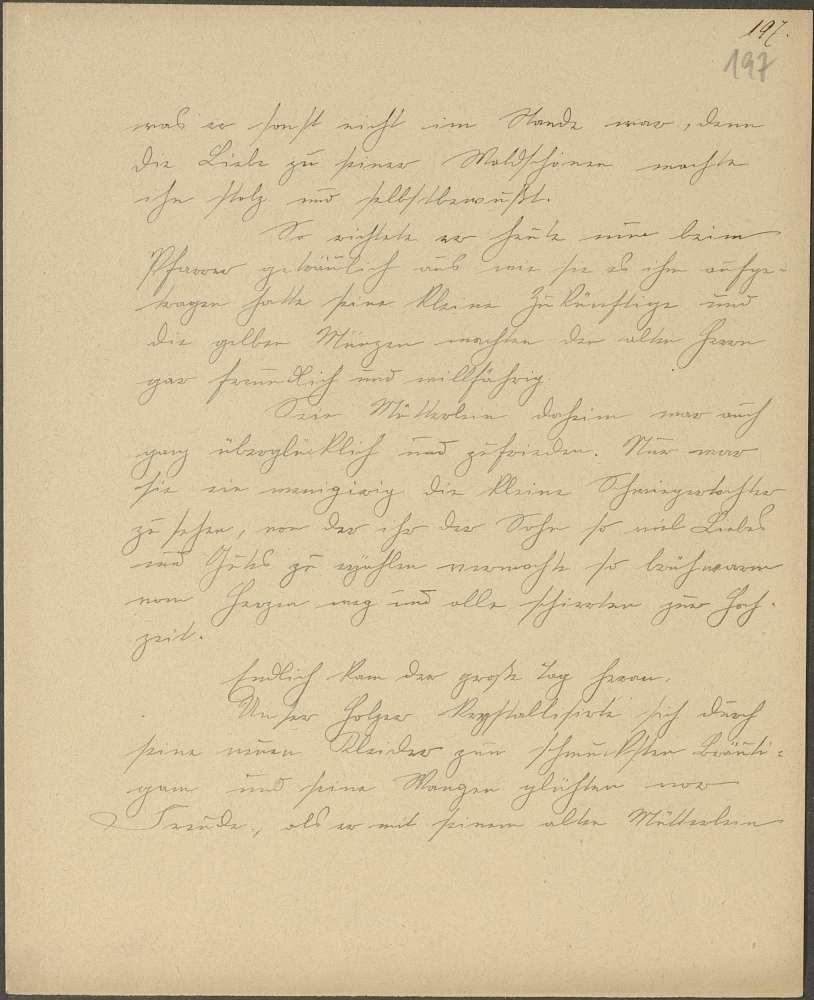 197.
197
was er sonst nicht im Stande war, denn
die Liebe zu seiner Waldschönen machte
ihn stolz und selbstbewußt.
So richtete er heute nun beim
Pfarrer getreulich aus wie sie es ihm aufge-
tragen hatte seine kleine Zukünftige und
die gelben Münzen machten den alten Herrn
gar freundlich und willfährig.
Sein Mütterlein daheim war auch
ganz überglücklich und zufrieden. Nur war
sie neugierig die kleine Schwiegertochter
zu sehen, von der ihr der Sohn so viel Liebes
und Gutes zu erzählen vermochte so brühwarm
vom Herzen weg und alle zur Hoch-
zeit.
Endlich kam der große Tag heran.
Unser Holzer krystallisirte sich durch
seine neuen Kleider zum schmucksten Bräuti-
gam und seine Wangen glühten vor
Freude, als er mit seinem alten Mütterlein